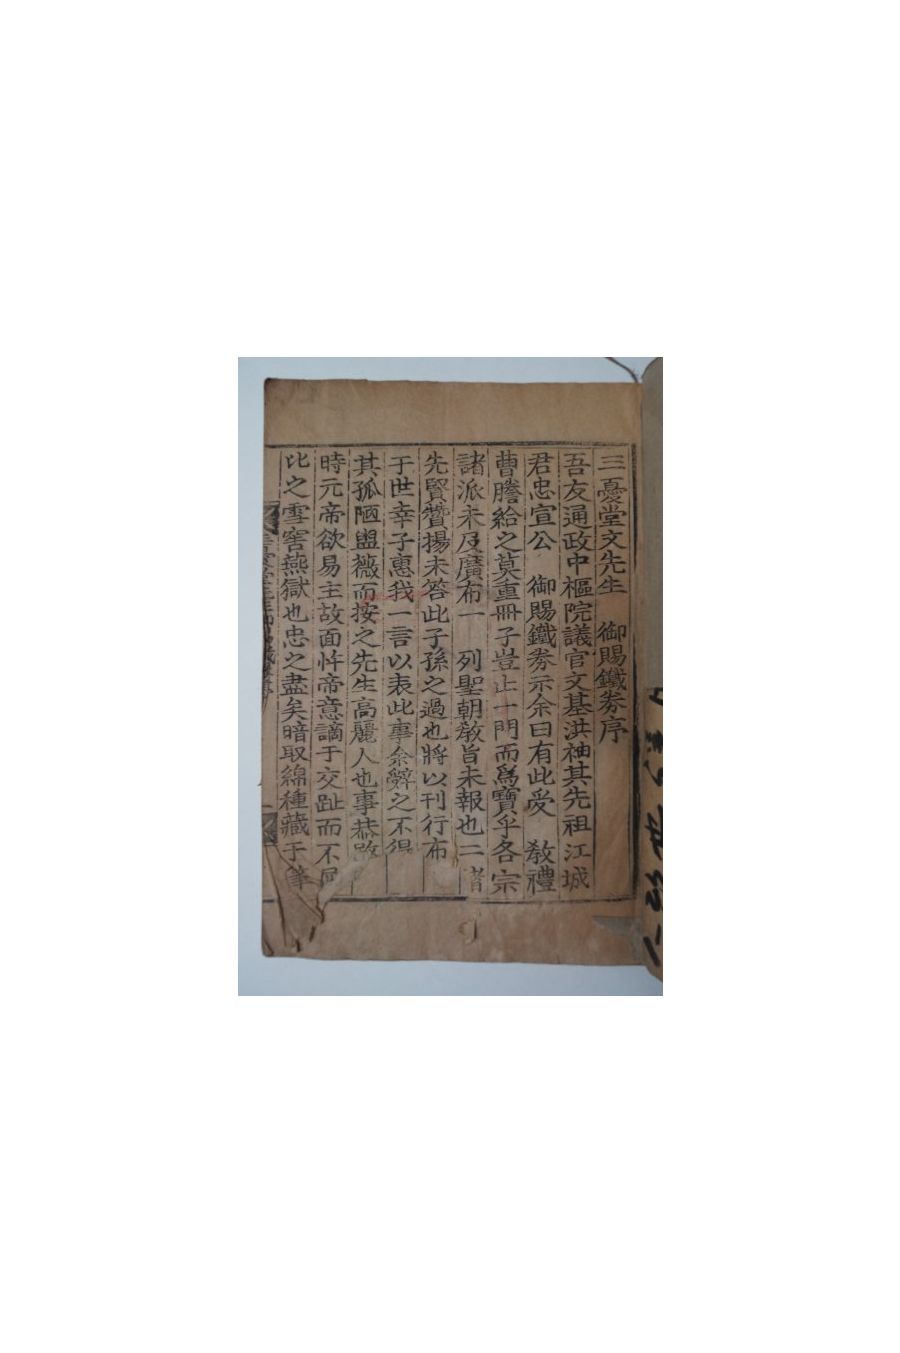 三憂堂文先生 御賜鐵券序
吾友通政中樞院議官文基洪袖其先祖江城
君忠宣公 御賜鐵券示余曰有此受 敎禮
曹謄給之莫重冊子豈止一門而爲寶乎各宗
諸派未及廣布一 列聖朝敎旨未報也二諸
先賢贊揚未答此子孫之過也將以刊行布
于世幸子惠我一言以表此事余辭之不得
其孤陋盥薇而按之先生高麗人也事恭愍
時元帝欲易主故面忤帝意謫于交趾而不屈
比之雪窖燕獄也忠之盡矣暗取綿種藏于筆